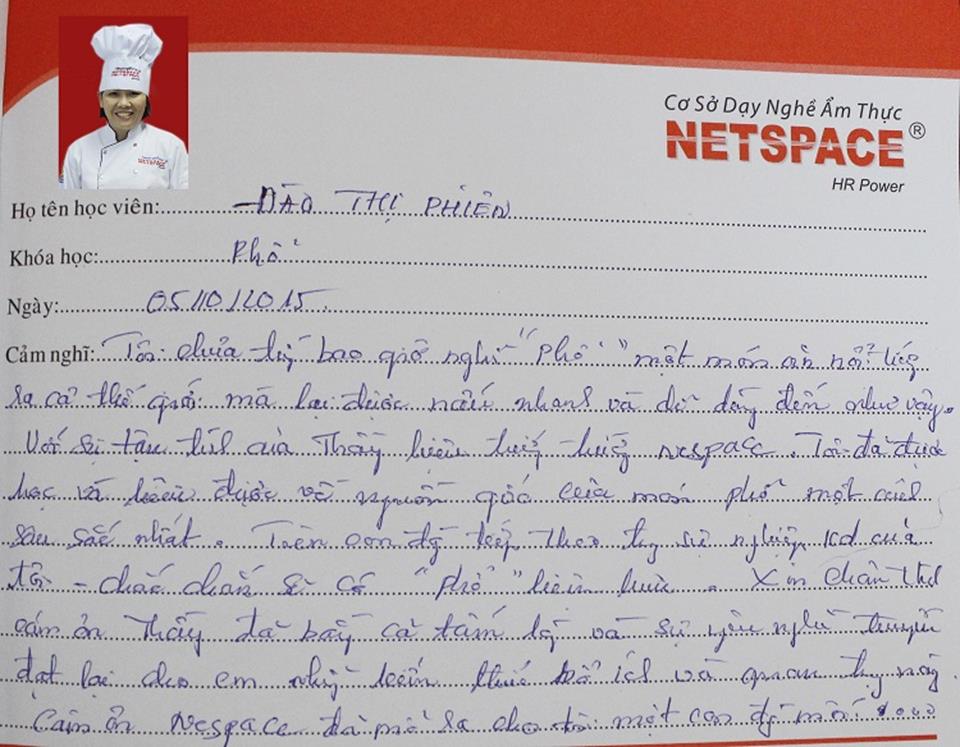 Cơ Sở Dạy Nghề Ẩm Thực
NETSPACE®
HR Power
NETSPACE
NETSPACE
Họ tên học viên: ĐÀO THỊ PHIÊN
Khóa học: Phở
Ngày: 05/10/2015.
Cảm nghĩ: Tôi chưa từng bao giờ nghĩ "Phở" một món ăn nổi tiếng
ra cả thế giới mà lại được nấu nhanh và dễ dàng đến như vậy.
Với sự tận tình của Thầy hiệu trưởng trường nespace. Tôi đã được
học và hiểu được về nguồn gốc của món phở một cách
sâu sắc nhất. Trên con đg tiếp theo trg sự nghiệp kd của
tôi - chắc chắn sẽ có "phở" hiện hữu. Xin chân thành
cám ơn Thầy đã bằng cả tấm lg và sự yêu nghề truyền
đạt lại cho em những kiến thức bổ ích và quan trọng này.
Cám ơn Nespace đã mở ra cho tôi một con đg mới